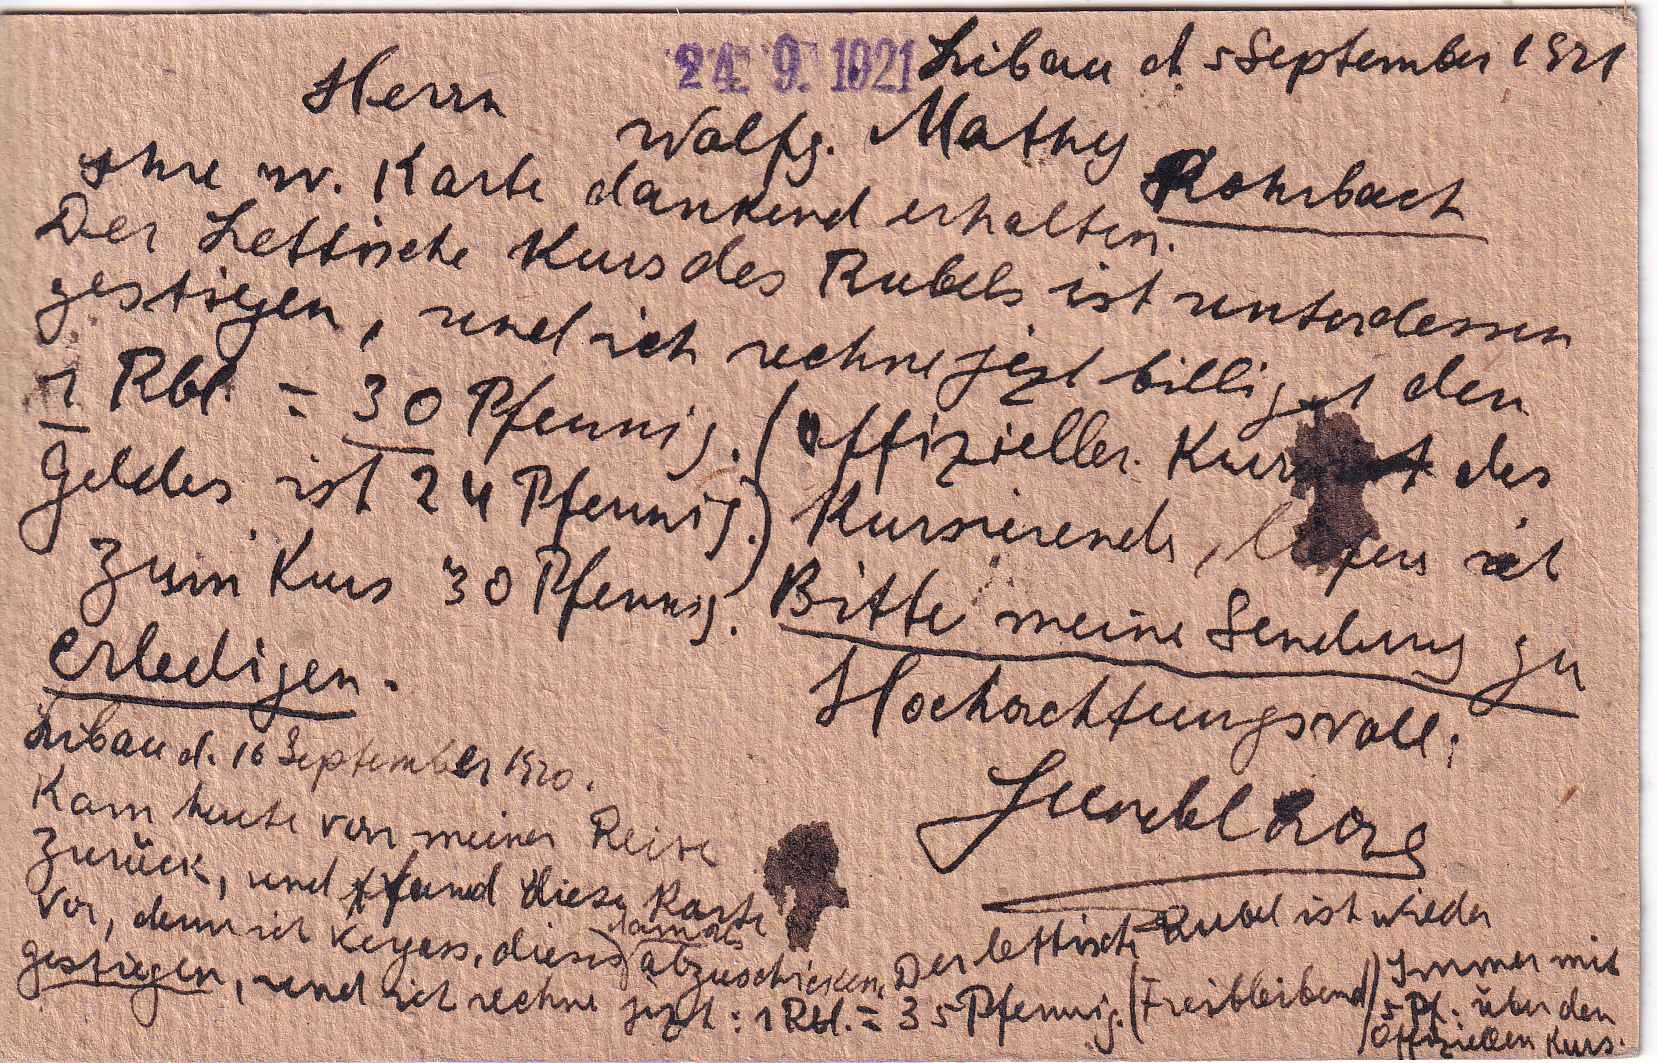 24. 9. 1921
Libau d. 5 September 1921
Herrn
Wolfg. Mathy
Rohrbach
Ihre w. Karte dankend erhalten.
Der Lettische Kurs des Rubels ist unterdessen
gestiegen, und ich rechne jezt billigst den
1 Rbl. = 30 Pfennig. (Offizieller Kurs des
Geldes ist 24 Pfennig.) Kursierende, ist
zum Kurs 30 Pfennig. Bitte meine Sendung zu
erledigen.
Hochachtungsvoll,
Libau d. 16 September 1920.
Kam heute von meiner Reise
zurück, und fand diese Karte
vor, denn ich vergass, dieses damals abzuschicken. Der lettische Rubel ist wieder
gestiegen, und ich rechne jezt: 1 Rbl. = 35 Pfennig. (Freibleibend) Immer mit
5 Pf. über den
Offiziellen Kurs.